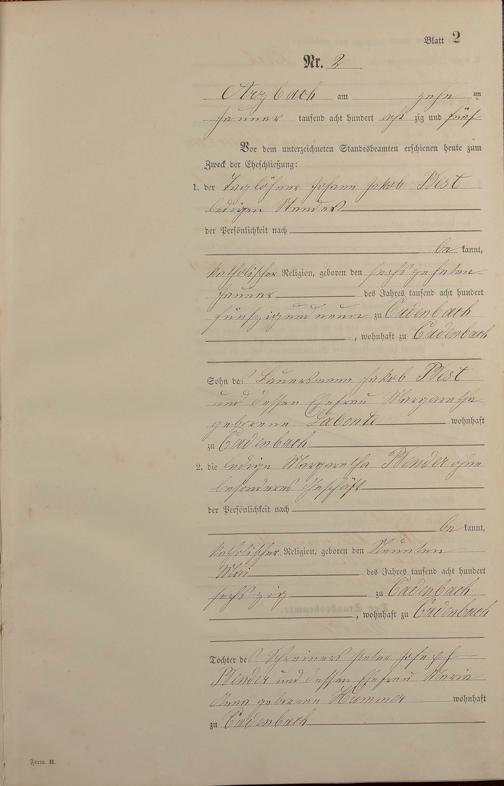 Blatt 2
Nr. 2
Arzbach am zehn ten
Januar tausend acht hundert acht zig und fünf
Vor dem unterzeichneten Standesbeamten erschienen heute zum
Zweck der Eheschließung:
1. der Taglöhner Johann Jakob Best
ledigen Standes
der Persönlichkeit nach
be kannt,
katholischer Religion, geboren den sechszehnten
Januar des Jahres tausend acht hundert
fünfzig und neun zu Cadenbach
, wohnhaft zu Cadenbach
Sohn des Jakob Best
und dessen Ehefrau Margaretha
geborene wohnhaft
zu Cadenbach
2. die ledige Margaretha Plender ohne
besonderes Geschäft
der Persönlichkeit nach
be kannt,
katholischer Religion, geboren den Neunten
Mai des Jahres tausend acht hundert
sechzig zu Cadenbach
, wohnhaft zu Cadenbach
Tochter des Schreiners Peter Joseph
Plender und dessen Ehefrau Maria
Anna geborene Hammer wohnhaft
zu Cadenbach
Form. B.